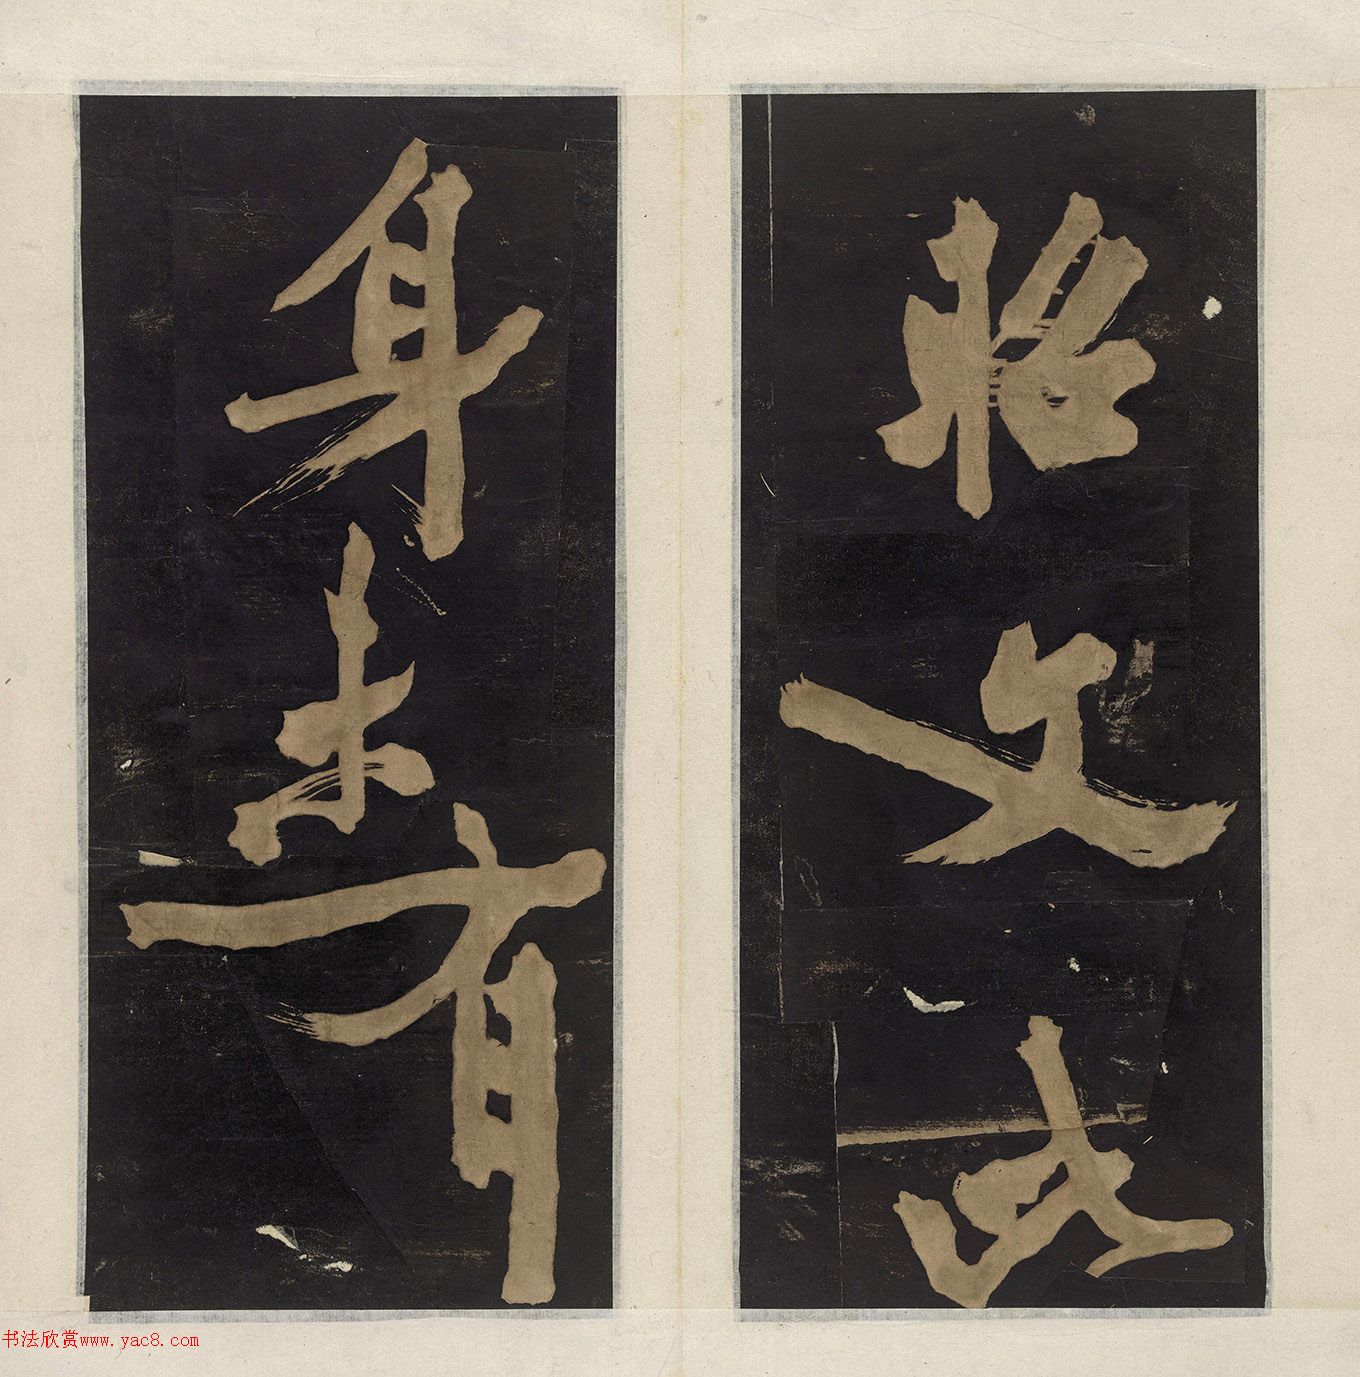 文此
身未有
书法欣赏www.yac8.com